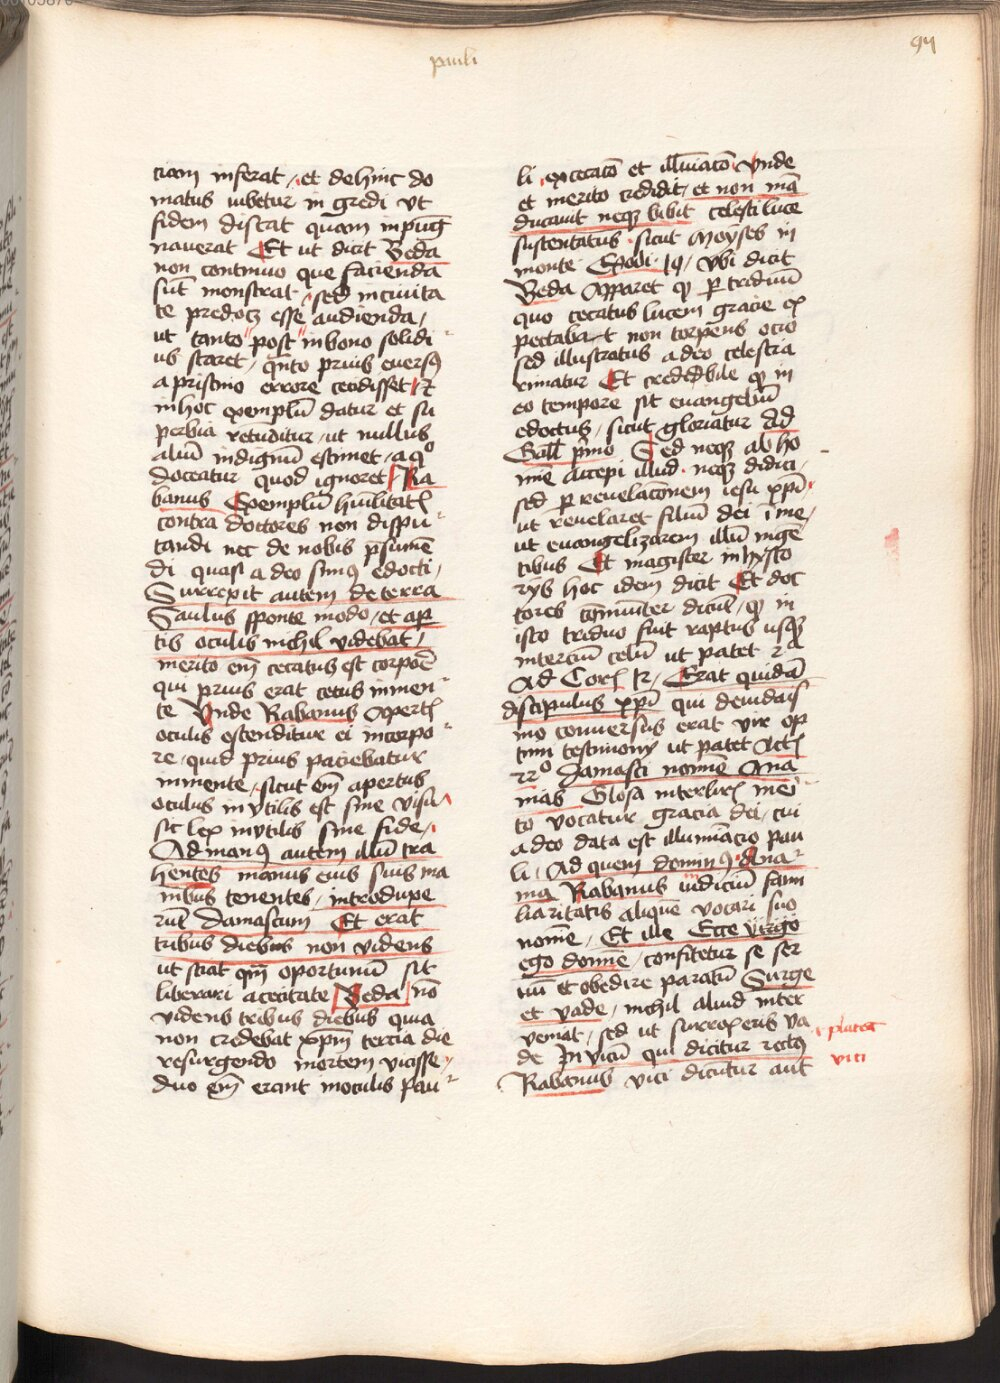 pauli
94
ciam inferat / et dehinc do
matus iubetur in gredi ut
fidem discat quam inpug̅
nauerat Et ut dicit Beda
non continuo que facienda
su̅t monstrat sed in ciuita
te predocꝫ esse audienda /
ut tanto post in bono solidi
us staret / qn̅to prius euersꝰ
a pristino errore cecidisset
in hoc exemplu̅ datur et su
perbia retunditur / ut nullus
aliu̅ indignu̅ estimet / a qͦ
doceatur quod ignoret Ra
banus Exemplu̅ hu̅ilitatꝭ
contra doctores non dispu
tandi nec de nobis p̅sume̅
di quasi a deo simꝰ edocti /
Surrexit autem de terra
Saulus sponte modo / et aꝑ
tis oculis nichil videbat /
merito em̅ cecatus est corpoe̅
qui prius erat cecus in men
te Unde Rabanus Apertꝭ
oculis ostenditur ei in corpo
re / quid prius paciebatur
in mente / sicut em̅ apertus
oculus inutilis est sine visu
sic lex inutilis sine fide /
Ad manꝰ autem illu̅ tra
hentes manus eius suis ma
nibus tenentes / introduxe
ru̅t Damascum Et erat
tribus diebus non videns
ut sciat qm̅ oportunu̅ sit
liberari a cecitate Beda no̅
videns tribus diebus quia
non credebat xp̅m tercia die
resurgendo mortem vicisse /
duo em̅ erant in oculis Pau
li excecac̅o et illu̅iac̅o Unde
et merito credidit / et non ma̅
ducauit neqꝫ bibit celesti luce
sustentatus sicut Moyses in
monte Exodi / ubi dicit
Beda Apparet ꝙ ꝑ triduu̅
quo cecatus lucem gracie ex
pectabat non torpens ocio
sed illustratus a deo celestia
rimatur Et credibile ꝙ in
eo tempore sit euangeliu̅
edoctus / sicut gloriatur Ad
Gall̅ p̅mo Sed neqꝫ ab ho
mi̅e accepi illud neqꝫ didici
sed ꝑ reuelac̅onem iesu xp̅i
ut reuelaret filiu̅ dei i̅ me /
ut euangelizarem illu̅ in ge̅
tibus Et magister in hysto
rijs hoc idem dicit Et doc
tores co̅muniter dicu̅t / ꝙ in
isto triduo fuit raptus usqꝫ
in terciu̅ celu̅ ut patet 2ͣ
Ad Corꝭ 12 / Erat quida̅
discipulus xp̅i qui de iudais
mo conuersus erat vir op
timi testimonij ut patet Actꝭ
22ͦ Damasci nomi̅e Ana
nias Glosa interlinꝭ meri
to vocatur gracia dei / cui
a deo data est illuminacio Pau
li / Ad quem dominꝰ Ana
nia Rabanus iudiciu̅ fami
liaritatis alique̅ vocari suo
nomi̅e / Et ille Ecce
ego domi̅e / confitetur se ser
uu̅ et obedire paratu̅ Surge
et vade / nichil aliud inter
veniat / sed ut surrexeris va
de In vicu̅ qui dicitur rectꝰ
Rabanus vici dicuntur aut
platee
vici